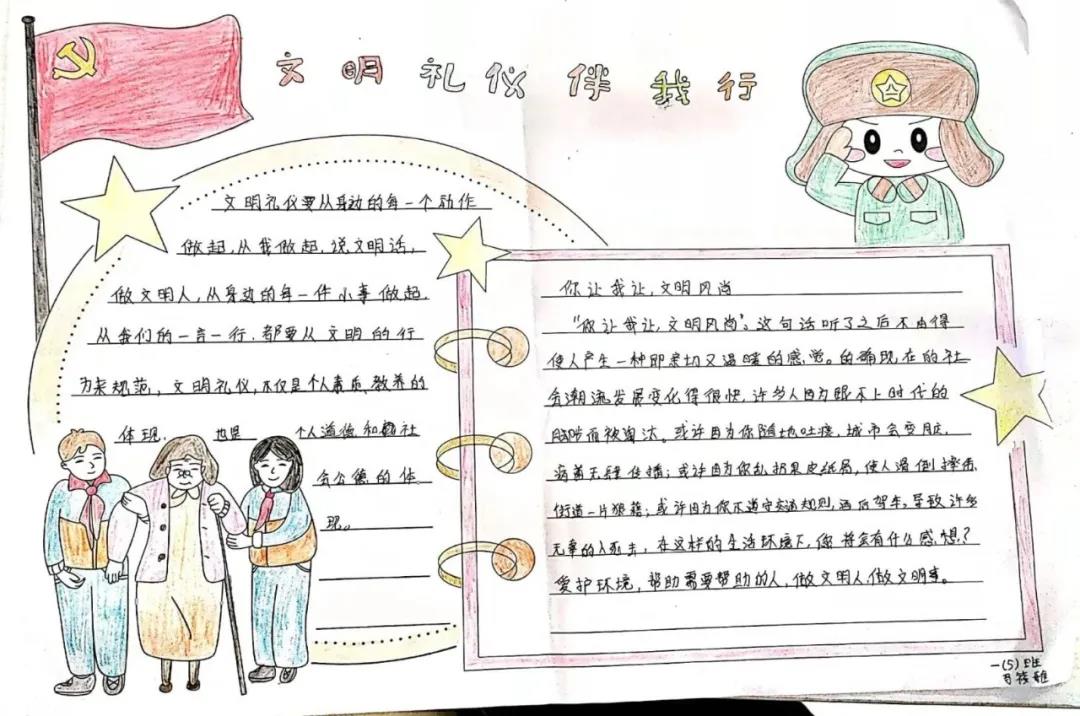 文明礼仪伴我行
文明礼仪要从身边的每一个动作
做起,从我做起,说文明话,
做文明人,从身边的每一件小事做起,
从我们的一言一行,都要从文明的行
为来规范,文明礼仪,不仅是个人素质、教养的
体现,也是个人道德和社
会公德的体
现。
你让我让,文明风尚
“你让我让,文明风尚”。这句话听了之后不由得
使人产生一种即亲切又温暖的感觉。的确现在的社
会潮流发展变化得很快,许多人因为跟不上时代的
而被淘汰。或许因为你随地吐痰,城市会变脏,
病菌无 传播;或许因为你乱扔果皮纸屑,使人滑倒摔伤
街道一片狼藉;或许因为你不遵守交通规则,酒后驾车,导致许多
无辜的人死去,在这样的生活环境下,你将会有什么感想?
爱护环境,帮助需要帮助的人,做文明人做文明事。
一(5)班